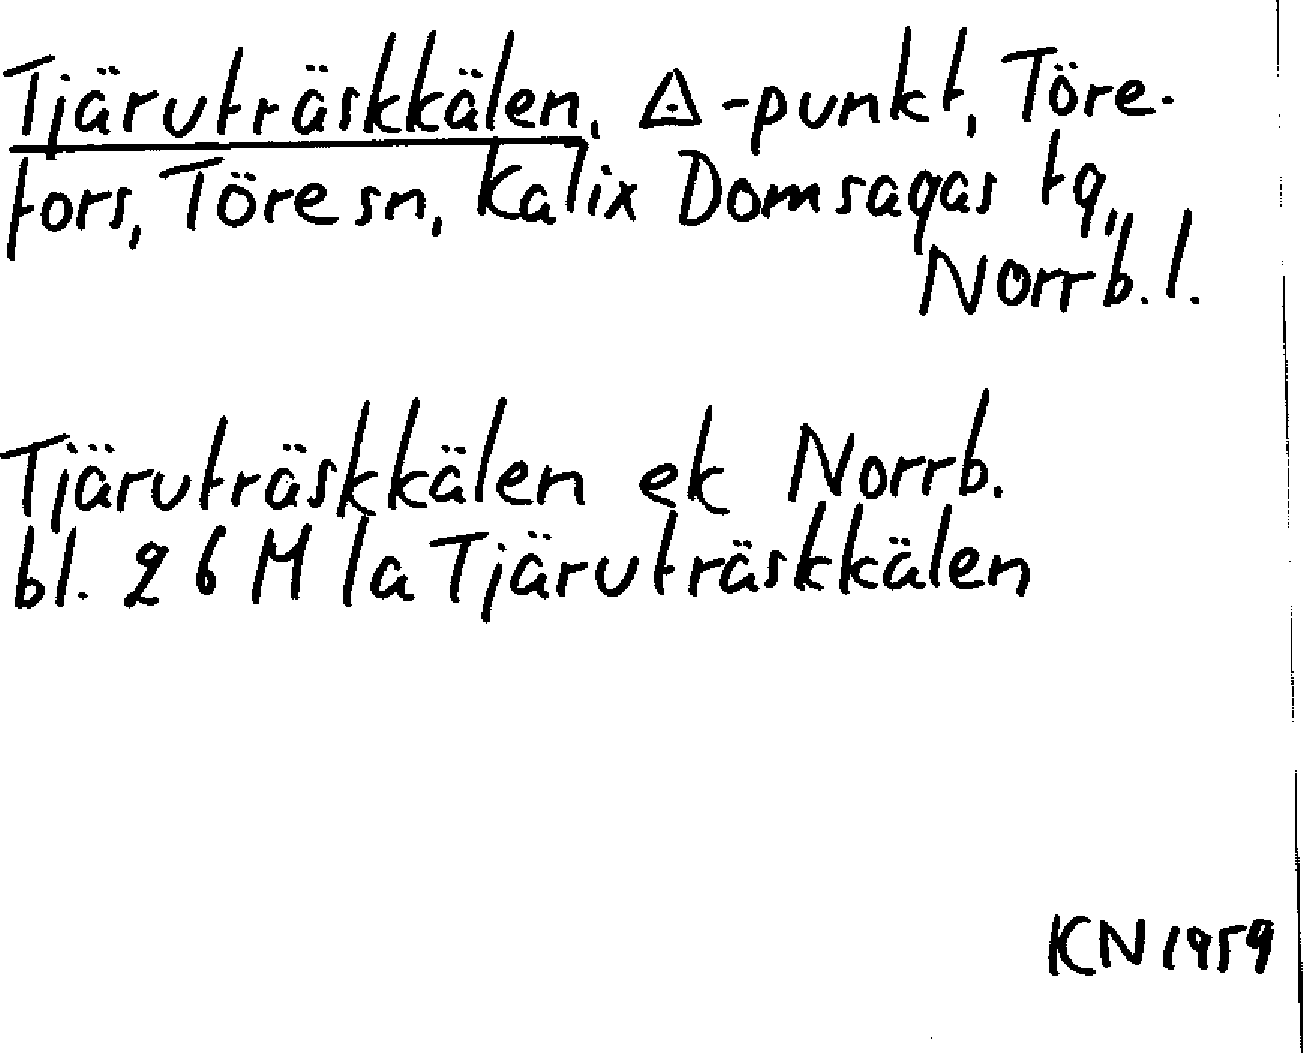 Tjäruträskkälen, △-punkt, Töre-
fors, Töre sn, Kalix Domsagas tg,
Norrb. l.
Tjäruträskkälen ek Norrb.
bl. 26 M la Tjäruträskkälen
KN 1959